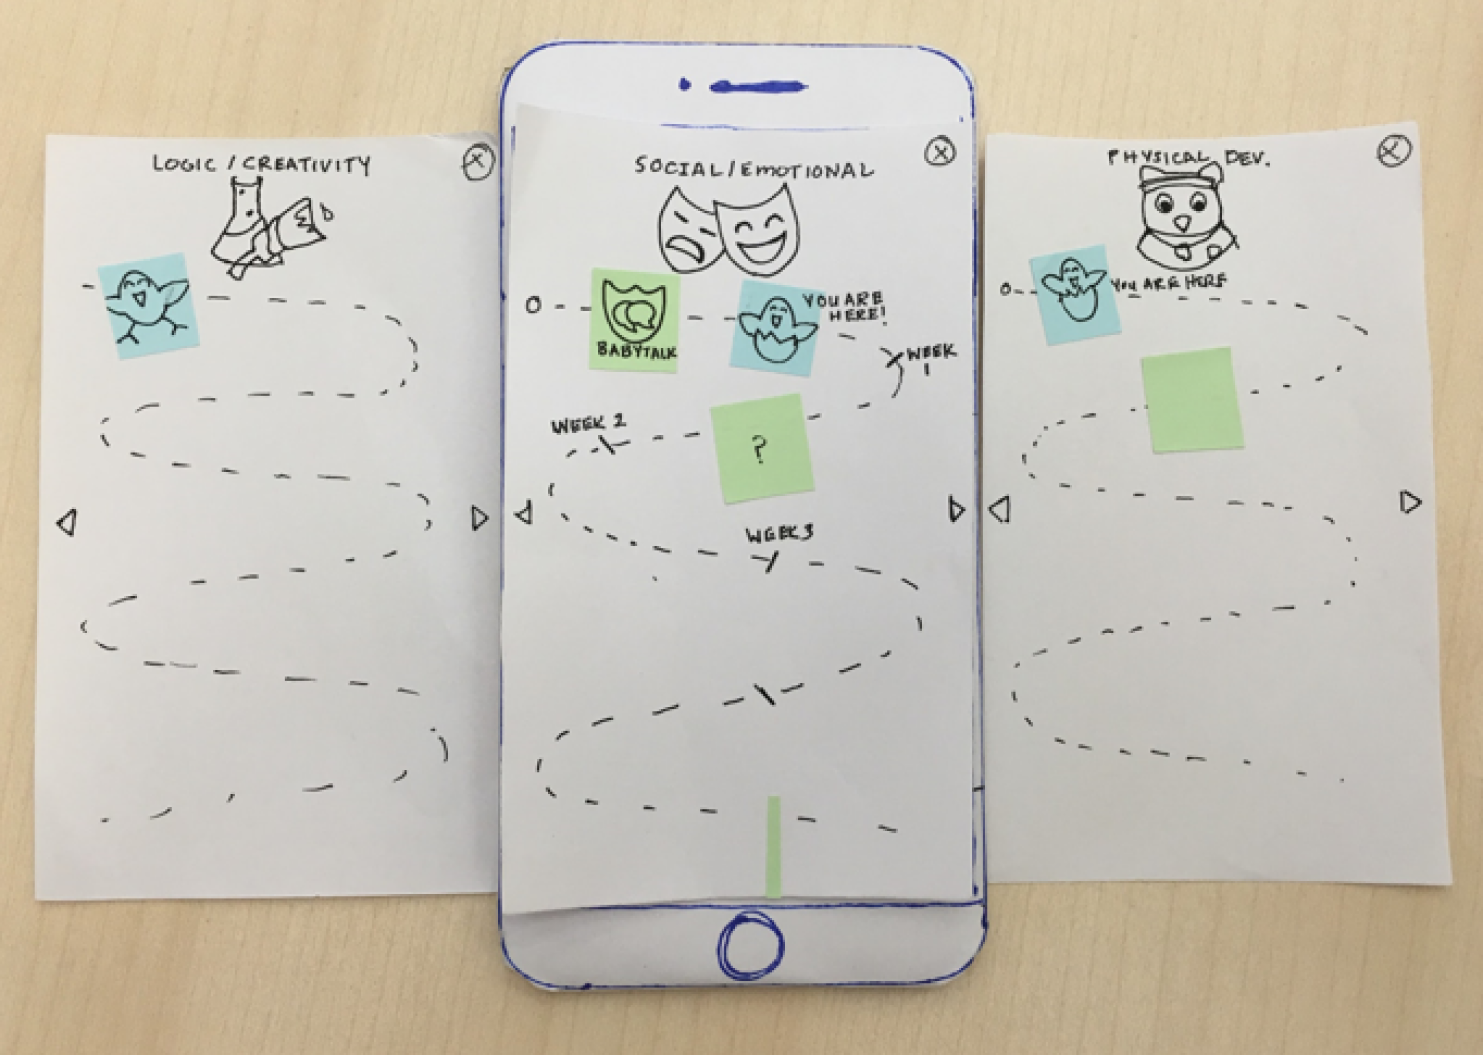 LOGIC / CREATIVITY
X
SOCIAL/EMOTIONAL
X
0
BABYTALK
YOU ARE
HERE!
WEEK
1
WEEK 2
?
WEEK3
PHYSICAL DEV.
X
0
YOU ARE HERE